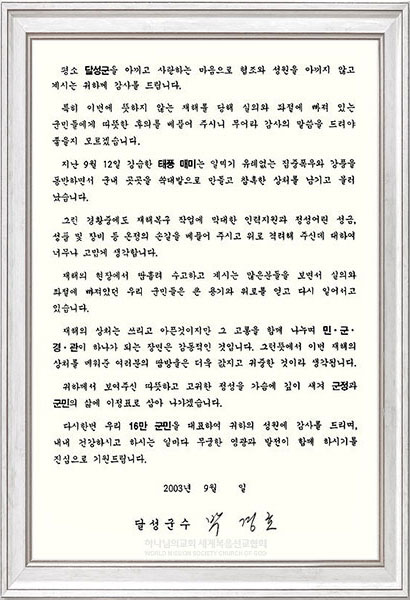 평소 달성군을 아끼고 사랑하는 마음으로 협조와 성원을 아끼지 않고
계시는 귀하께 감사를 드립니다.
특히 이번에 뜻하지 않는 재해를 당해 실의와 좌절에 빠져 있는
군민들에게 따뜻한 후의를 베풀어 주시니 무어라 감사의 말씀을 드려야
좋을지 모르겠습니다.
지난 9월 12일 강습한 태풍 매미는 일찌기 유례없는 집중폭우와 강풍을
동반하면서 군내 곳곳을 쑥대밭으로 만들고 참혹한 상처를 남기고 물러
났습니다.
그런 경황중에도 재해복구 작업에 막대한 인력지원과 정성어린 성금,
성품 및 장비 등 온정의 손길을 베풀어 주시고 위로 격려해 주신데 대하여
너무나 고맙게 생각합니다.
재해의 현장에서 땀흘려 수고하고 계시는 많은분들을 보면서 실의와
좌절에 빠져있던 우리 군민들은 큰 용기와 위로를 얻고 다시 일어서고
있습니다.
재해의 상처는 쓰리고 아픈것이지만 그 고통을 함께 나누며 민·군·
경·관이 하나가 되는 장면은 감동적인 것입니다. 그런뜻에서 이번 재해의
상처를 메워준 여러분의 땀방울은 더욱 값지고 귀중한 것이라 생각됩니다.
귀하께서 보여주신 따뜻하고 고귀한 정성을 가슴에 깊이 새겨 군정과
군민의 삶에 이정표로 삼아 나가겠습니다.
다시한번 우리 16만 군민을 대표하여 귀하의 성원에 감사를 드리며,
내내 건강하시고 하시는 일마다 무궁한 영광과 발전이 함께 하시기를
진심으로 기원드립니다.
2003년 9월 일
달성군수 박경호
하나님의교회 세계복음선교협회
WORLD MISSION SOCIETY CHURCH OF GOD